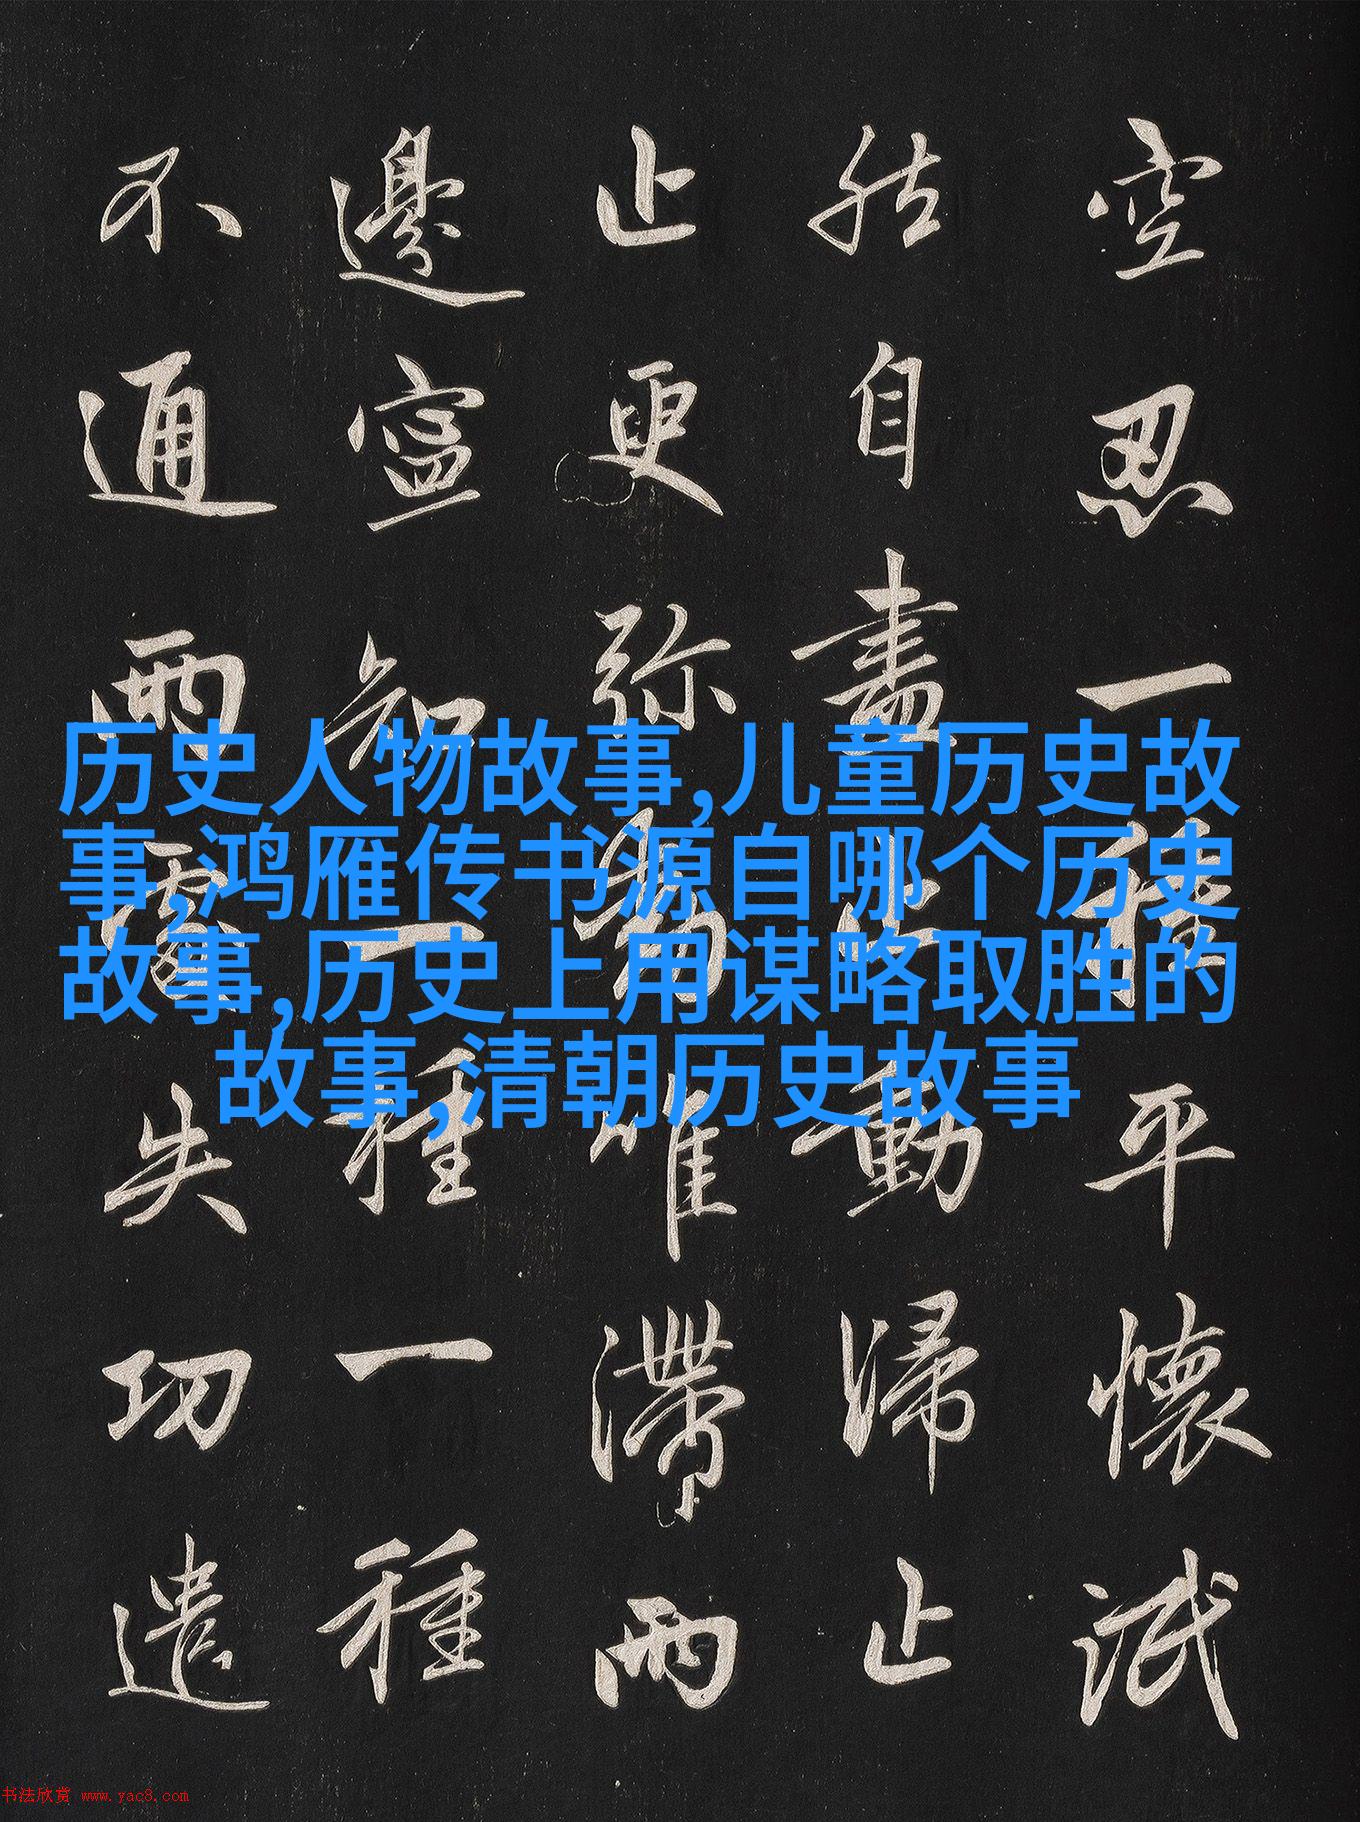 空忍一種平懷泯
然自盡止動歸止
止更弥動唯滯兩
邊寧知一種一種
不通兩處失功遣
历史人物故事,儿童历史故
事,鸿雁传书源自哪个历史
故事,历史上用谋略取胜的
故事,清朝历史故事
书法欣赏 www.yac8.com